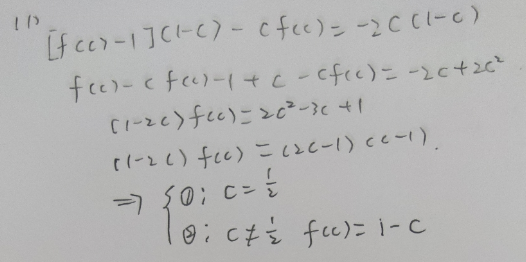 (1)
[f(c)-1](1-c) - cf(c) = -2c(1-c)
f(c)-cf(c)-1+c-cf(c)=-2c+2c²
(1-2c)f(c)=2c²-3c+1
(1-2c)f(c)=(2c-1)(c-1).
⇒ { ①: c=1/2
②: c≠1/2 f(c)=1-c